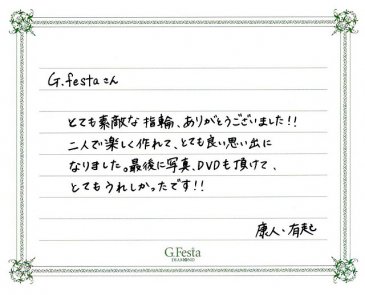 G.festaさん
とても素敵な指輪、ありがとうございました!!
二人で楽しく作れて、とても良い思い出に
なりました。最後に写真、DVDも頂けて、
とてもうれしかったです!!
康人・有起
G.Festa
DIAMOND